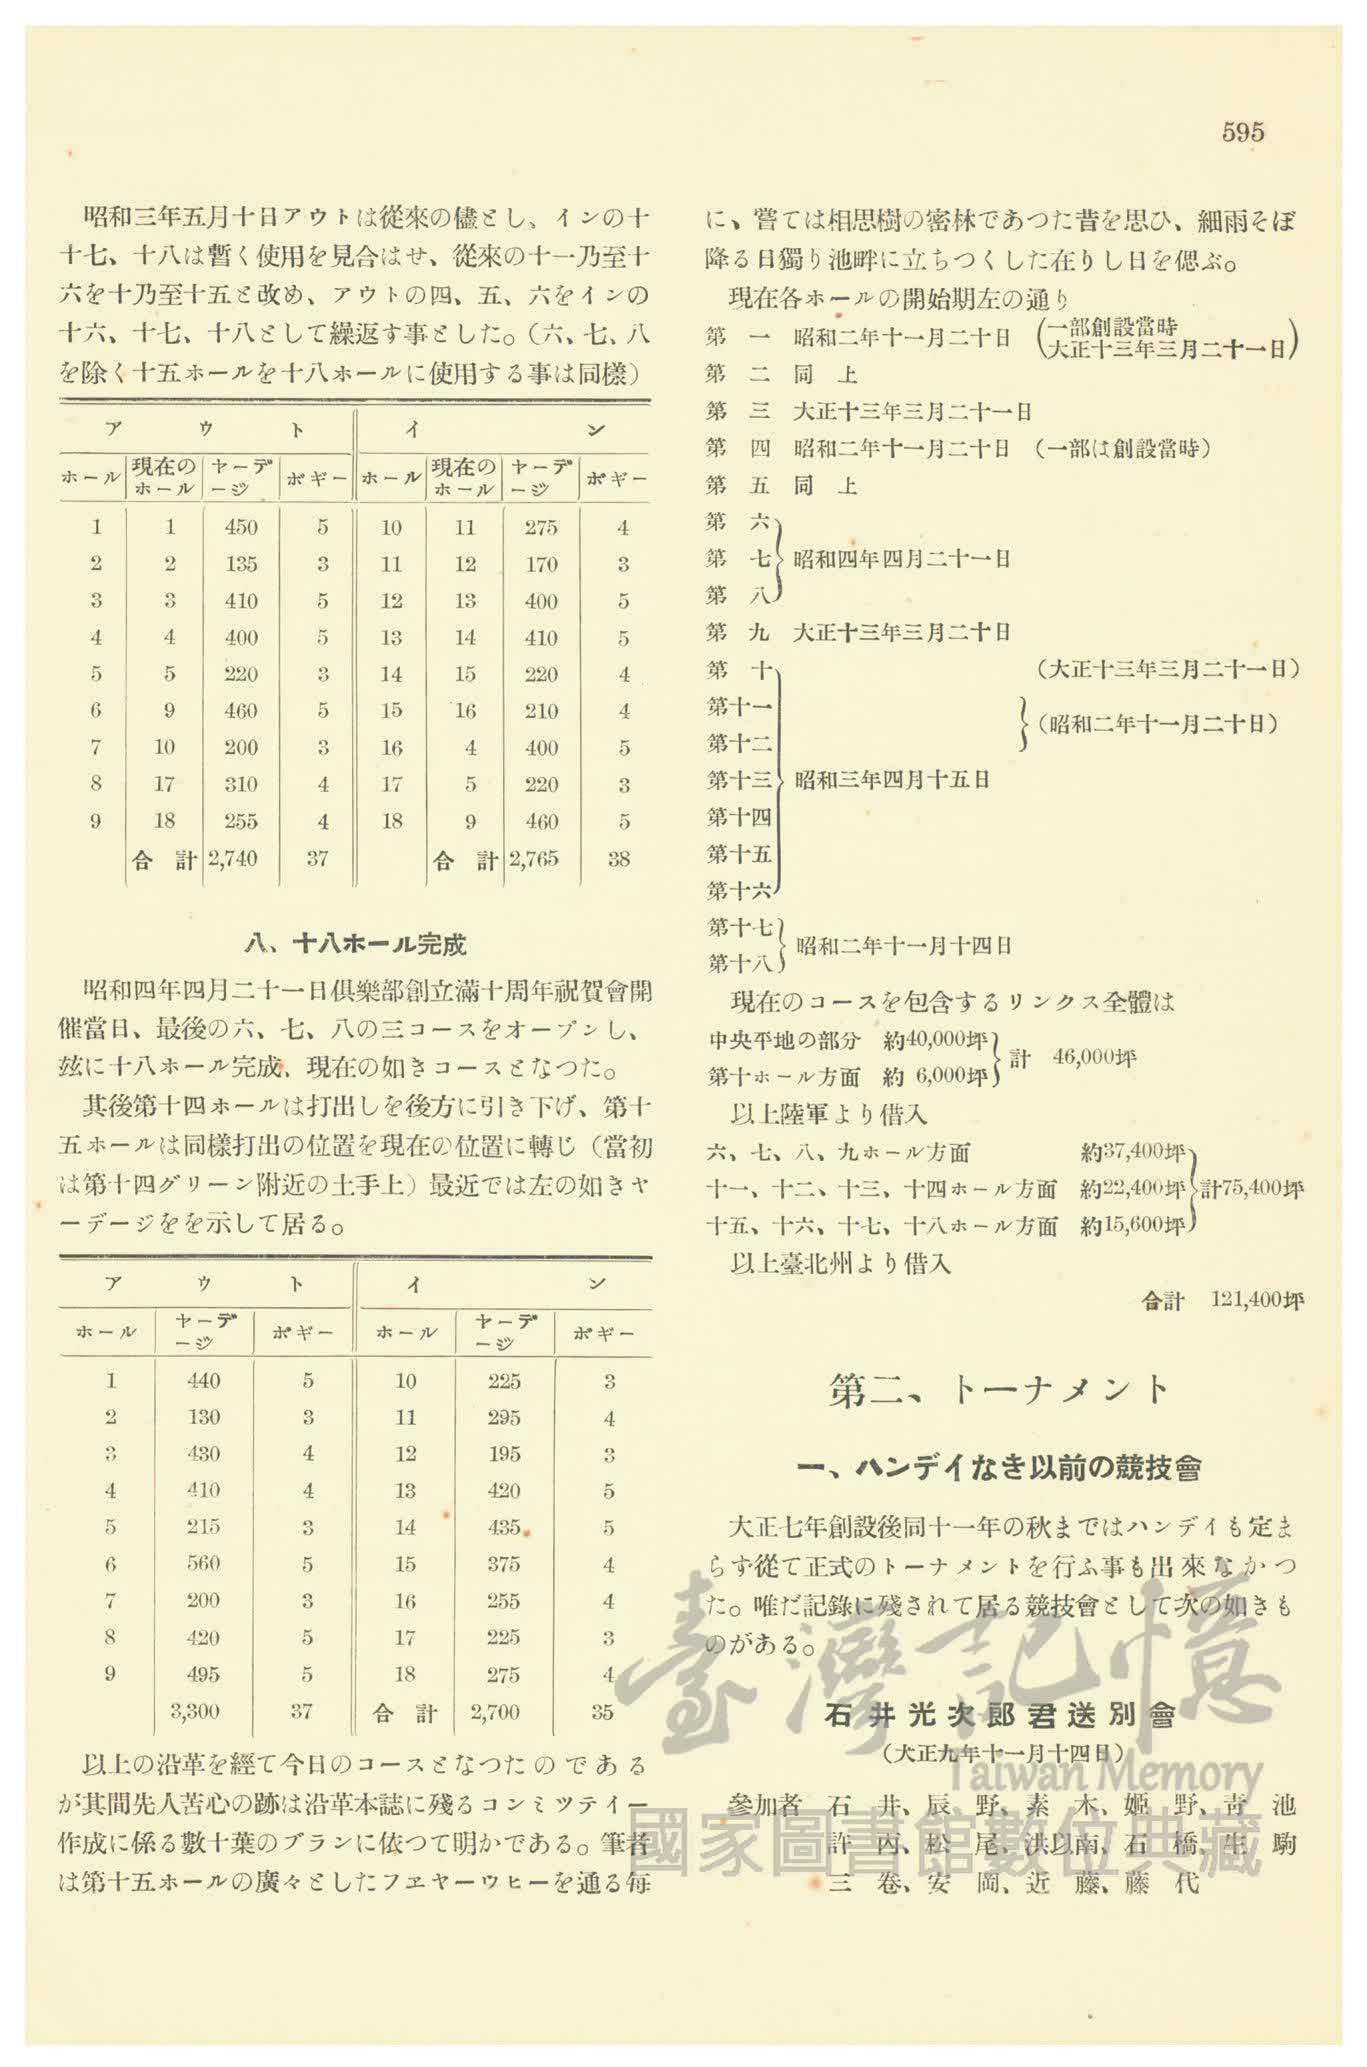 595
昭和三年五月十日アウトは從來の儘とし、インの十
十七、十八は暫く使用を見合はせ、從來の十一乃至十
六を十乃至十五と改め、アウトの四、五、六をインの
十六、十七、十八として繰返す事とした。（六、七、八
を除く十五ホールを十八ホールに使用する事は同樣）
アウト イン
ホール 現在のホール ヤーデージ ボギー ホール 現在のホール ヤーデージ ボギー
1 1 450 5 10 11 275 4
2 2 135 3 11 12 170 3
3 3 410 5 12 13 400 5
4 4 400 5 13 14 410 5
5 5 220 3 14 15 220 4
6 9 460 5 15 16 210 4
7 10 200 3 16 4 400 5
8 17 310 4 17 5 220 3
9 18 255 4 18 9 460 5
合計 2,740 37 合計 2,765 38
八、十八ホール完成
昭和四年四月二十一日倶樂部創立滿十周年祝賀會開
催當日、最後の六、七、八の三コースをオープンし、
玆に十八ホール完成、現在の如きコースとなつた。
其後第十四ホールは打出しを後方に引き下げ、第十
五ホールは同樣打出の位置を現在の位置に轉じ（當初
は第十四グリーン附近の土手上）最近では左の如きヤ
ーデージをを示して居る。
アウト イン
ホール ヤーデージ ボギー ホール ヤーデージ ボギー
1 440 5 10 225 3
2 130 3 11 295 4
3 430 4 12 195 3
4 410 4 13 420 5
5 215 3 14 435 5
6 560 5 15 375 4
7 200 3 16 255 4
8 420 5 17 225 3
9 495 5 18 275 4
3,300 37 合計 2,700 35
以上の沿革を經て今日のコースとなつたのである
が其間先人苦心の跡は沿革本誌に殘るコンミツテイー
作成に係る數十葉のプランに依つて明かである。筆者
は第十五ホールの廣々としたフエヤーウヒーを通る每
に、嘗ては相思樹の密林であつた昔を思ひ、細雨そぼ
降る日獨り池畔に立ちつくした在りし日を偲ぶ。
現在各ホールの開始期左の通り
第一 昭和二年十一月二十日 （一部創設當時 大正十三年三月二十一日）
第二 同上
第三 大正十三年三月二十一日
第四 昭和二年十一月二十日 （一部は創設當時）
第五 同上
第六
第七 昭和四年四月二十一日
第八
第九 大正十三年三月二十日
第十 （大正十三年三月二十一日）
第十一
（昭和二年十一月二十日）
第十二
第十三 昭和三年四月十五日
第十四
第十五
第十六
第十七
昭和二年十一月十四日
第十八
現在のコースを包含するリンクス全體は
中央平地の部分 約40,000坪
計 46,000坪
第十ホール方面 約 6,000坪
以上陸軍より借入
六、七、八、九ホール方面 約37,400坪
十一、十二、十三、十四ホール方面 約22,400坪 計75,400坪
十五、十六、十七、十八ホール方面 約15,600坪
以上臺北州より借入
合計 121,400坪
第二、トーナメント
一、ハンデイなき以前の競技會
大正七年創設後同十一年の秋まではハンデイも定ま
らず從て正式のトーナメントを行ふ事も出來なかつ
た。唯だ記錄に殘されて居る競技會として次の如きも
のがある。
石井光次郎君送別會
（大正九年十一月十四日）
參加者 石井、辰野、素木、姬野、靑池
許丙、松尾、洪以南、石橋、生駒
三卷、安岡、近藤、藤代
臺灣記憶
Taiwan Memory
國家圖書館數位典藏